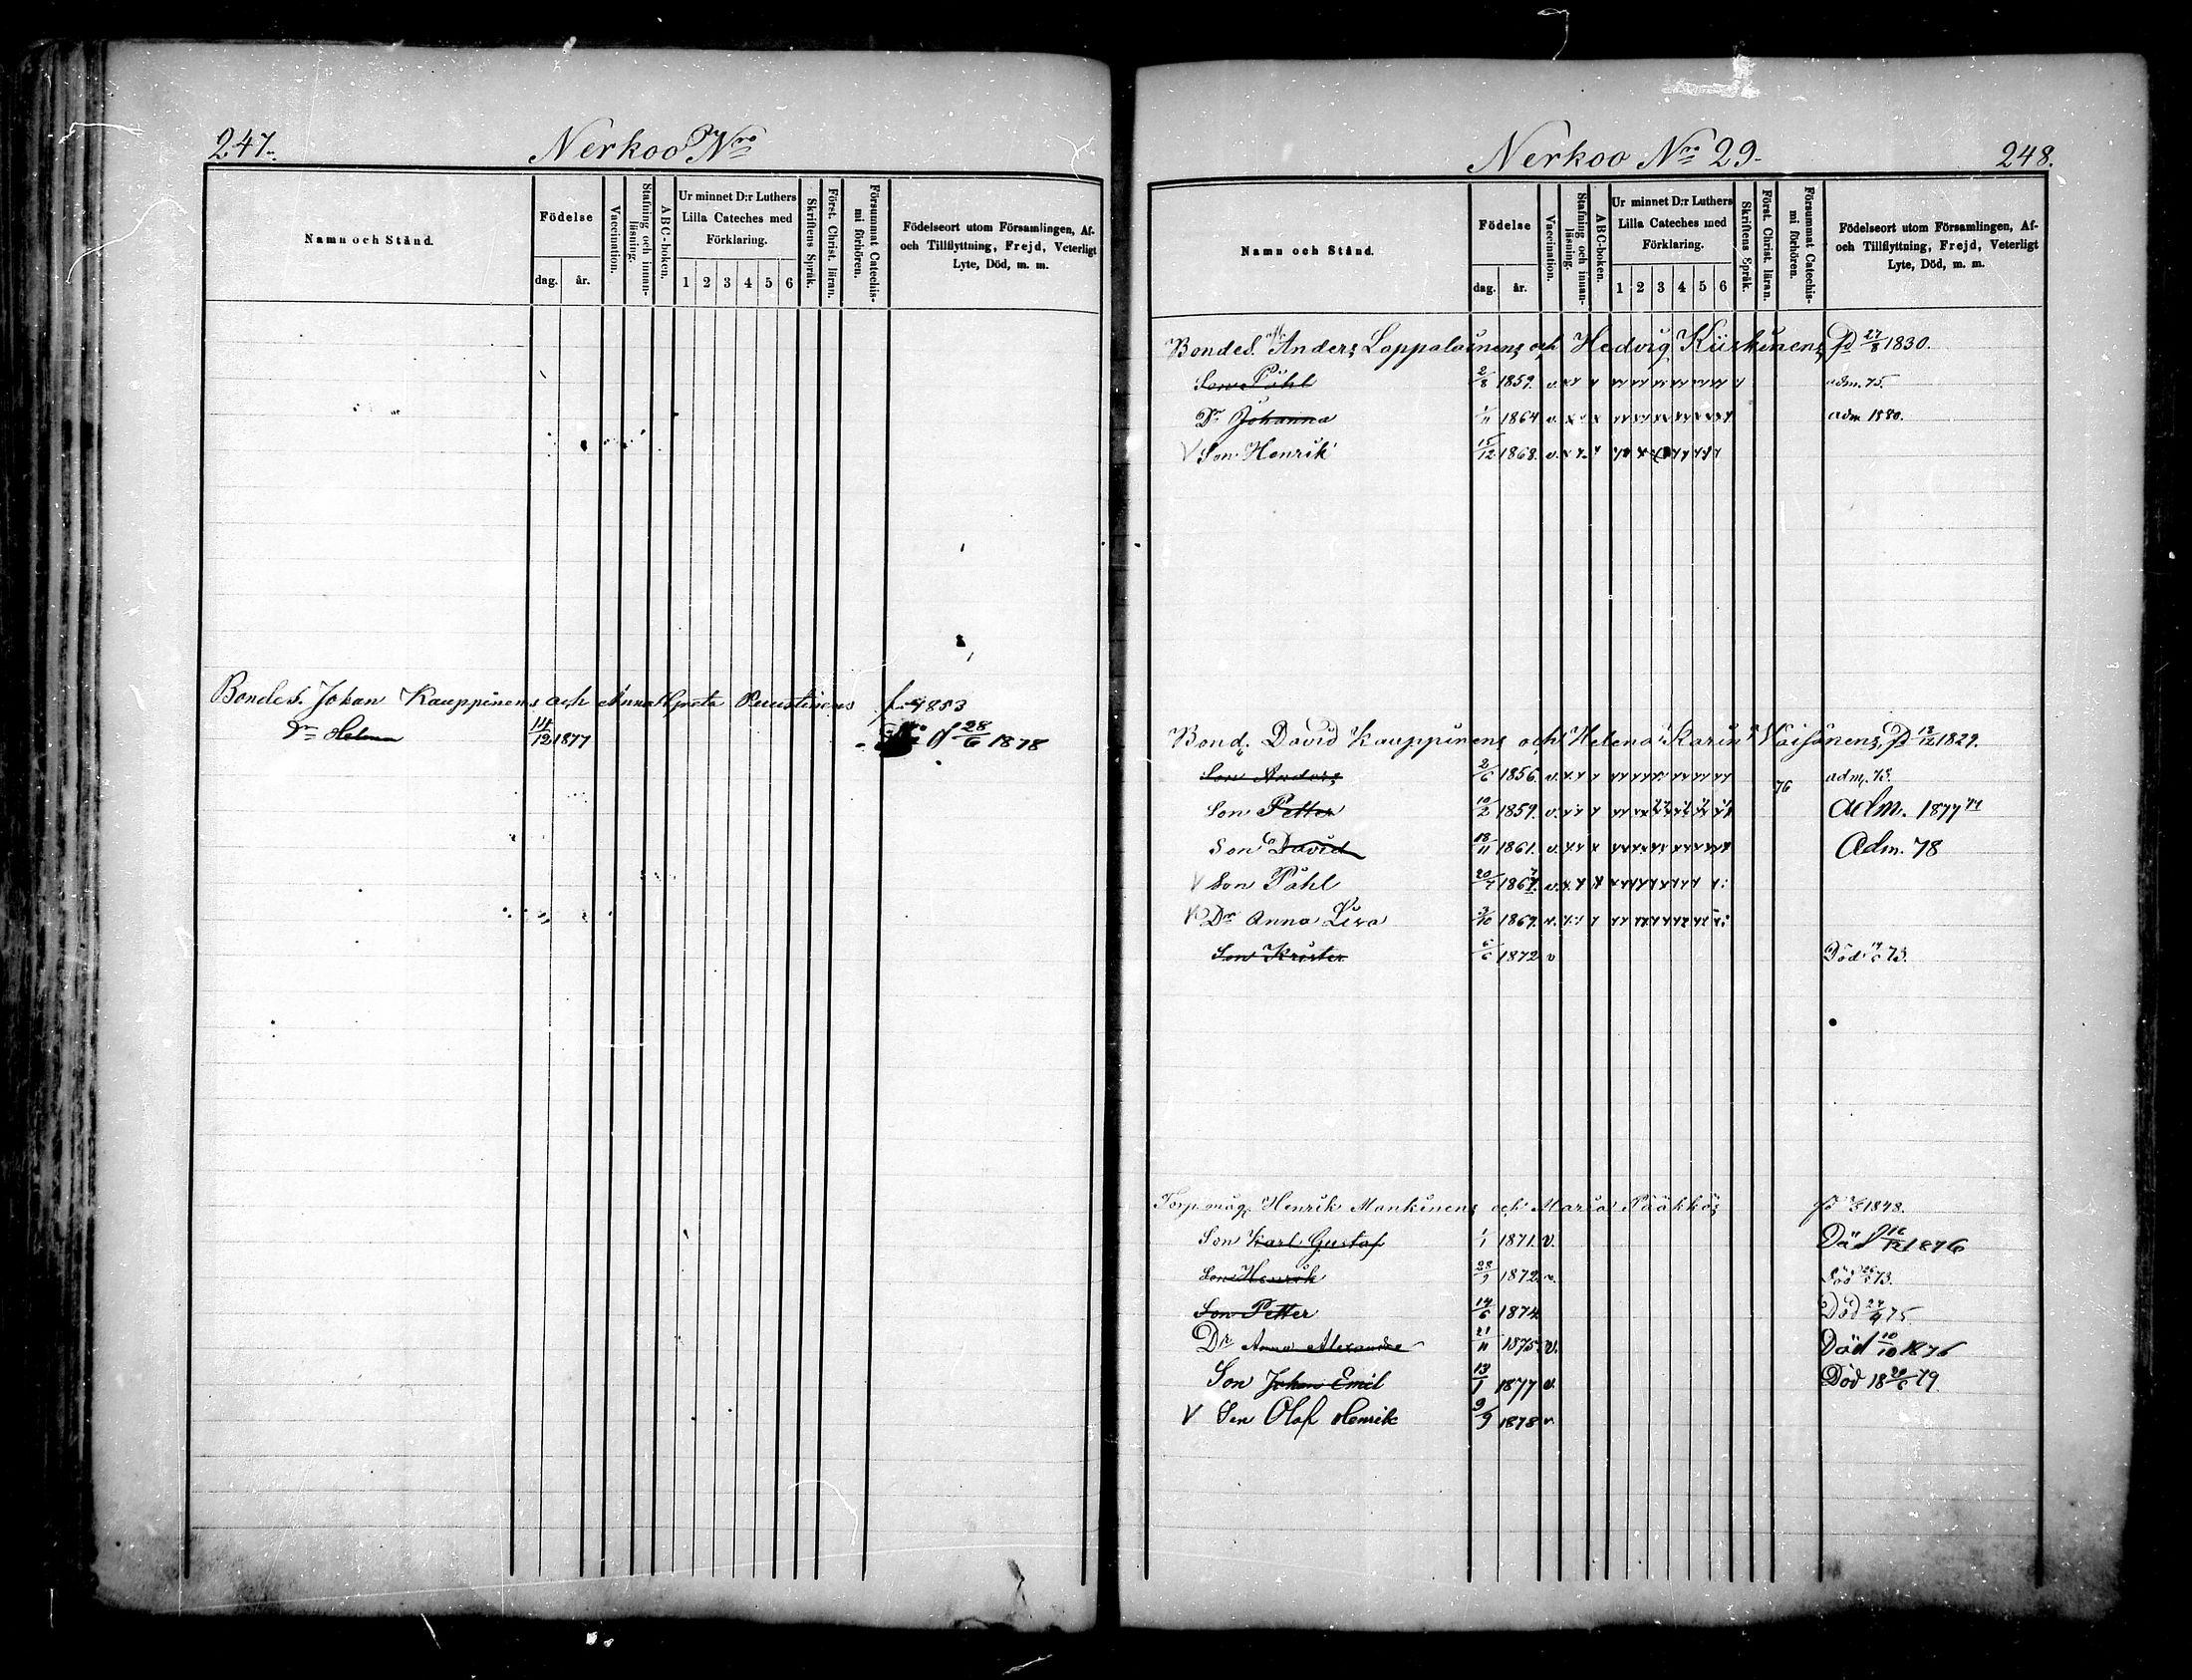 247.
Nerkoo Nro
Namn och Stånd.
Födelse
dag.
år.
Vaccination.
Stafning och innan-
läsning.
ABC-boken.
Ur minnet D:r Luthers
Lilla Cateches med
Förklaring.
1 2 3 4 5 6
Skriftens Språk.
Först. Christ. läran.
Försummat Catechis-
mi förhören.
Födelseort utom Församlingen, Af-
och Tillflyttning, Frejd, Veterligt
Lyte, Död, m. m.
Bondes. Johan Kauppinens och Anna Greta f. 1853
Dr Helena 14/12 1877 28/6 1878
Nerkoo Nro 29.
248.
Namn och Stånd.
Födelse
dag.
år.
Vaccination.
Stafning och innan-
läsning.
ABC-boken.
Ur minnet D:r Luthers
Lilla Cateches med
Förklaring.
1 2 3 4 5 6
Skriftens Språk.
Först. Christ. läran.
Försummat Catechis-
mi förhören.
Födelseort utom Församlingen, Af-
och Tillflyttning, Frejd, Veterligt
Lyte, Död, m. m.
Bondes. Anders Lappalainens och Hedvig 27/8 1830.
Son Påhl 2/8 1859. v. adm. 75.
Dr Johanna 1/11 1864 v. adm 1880.
V Son Henrik 15/12 1868. v.
Bond. David Kauppinens och Helena Karin Väisänens 13/12 1829.
Son Anders 2/6 1856. v. adm. 73.
76
Son Petter 10/2 1859. v. adm. 1877
Son David 18/11 1861. v. Adm. 78
V Son Påhl 20/7 1867. v.
V Dr Anna Lisa 3/10 1869. v.
Son Krister 6/6 1872 v Död 73.
Henrik Mankinens och Maria Pääkkös 1848.
Son Karl Gustaf 1/1 1871. v. Död 16/12 1876
Son Henrik 28/9 1872. v. Död 73.
Son Petter 14/6 1874 Död 75.
Dr Anna Alexandra 21/11 1875. v. Död 10/10 1876
Son Johan Emil 13/1 1877 v. Död 18 79.
V Son Olof Henrik 9/9 1878 v.